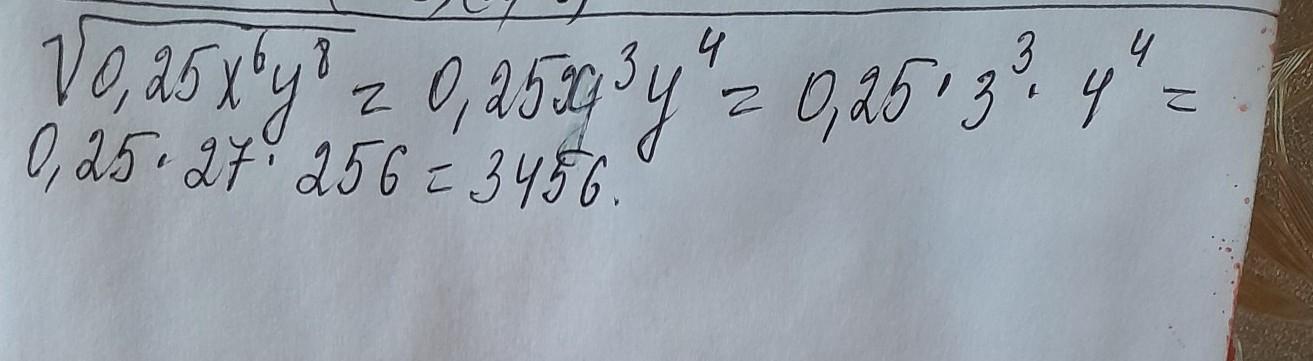 √0,25x⁶y⁸ = 0,25x³y⁴ = 0,25 · 3³ · 4⁴ =
0,25 · 27 · 256 = 3456.